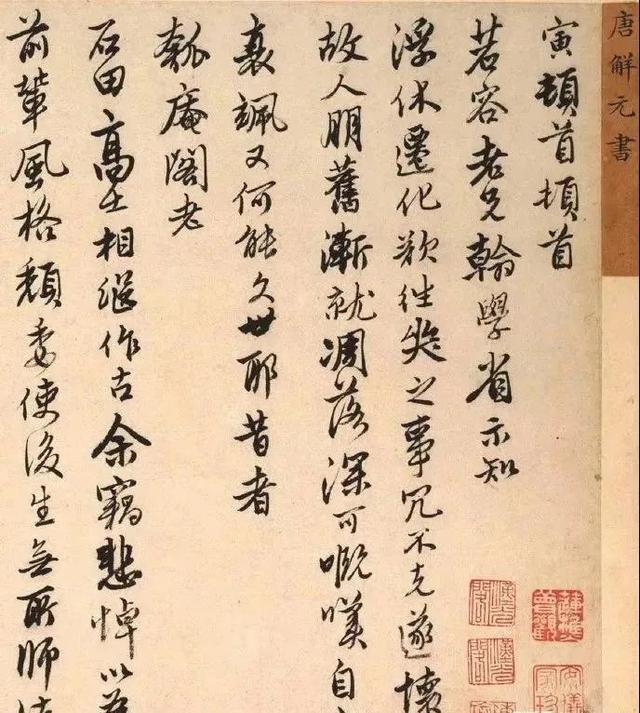 唐解元書
寅頓首頓首
若容老兄翰學省示知
浮休遷化欲往奠之事冗不克遂懷
故人朋舊漸就凋落深可慨嘆自
衰颯又何能久世耶昔者
瓠庵閣老
石田高士相繼作古余竊悲悼以為
前輩風格頹委使後生無所師法